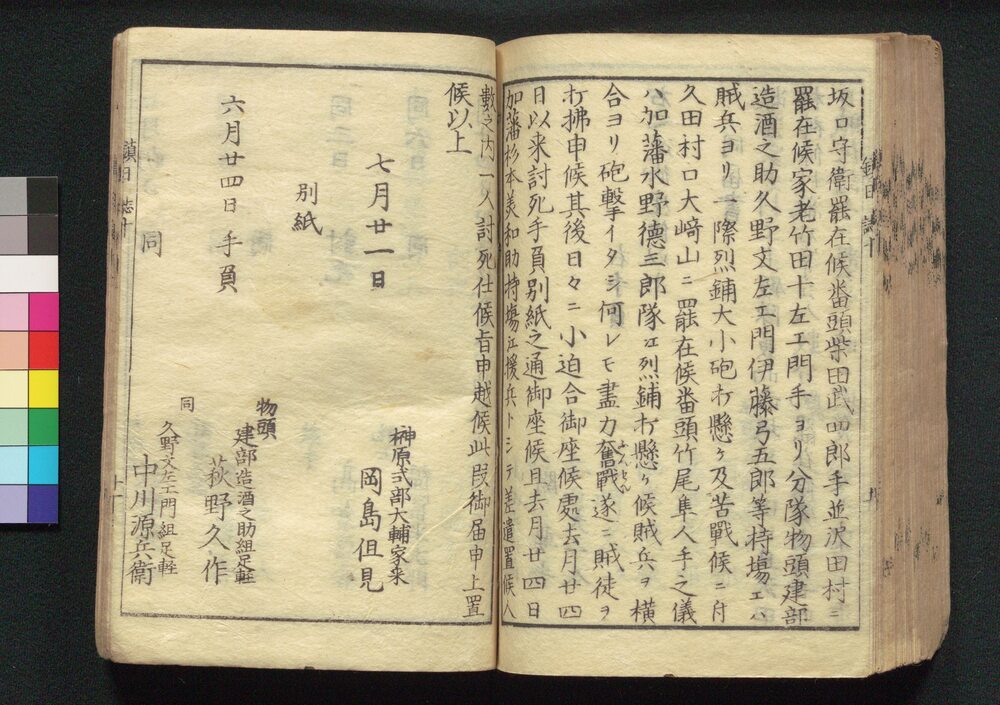 坂口守衛罷在候畨頭柴田武四郎手並沢田村ニ
罷在候家老竹田十左エ門手ヨリ分隊物頭建部
造酒之助久野文左エ門伊藤弓五郎等持塲エハ
賊兵ヨリ一際烈鋪大小砲打懸ケ及苦戰候ニ付
久田村口大﨑山ニ罷在候畨頭竹尾隼人手之儀
ハ加藩水野德三郎隊江烈鋪打懸ケ候賊兵ヲ横
合ヨリ砲擊イタシ何レモ盡力奮戰遂ニ賊徒ヲ
打拂申候其後日々ニ小迫合御座候處去月廿四
日以来討死手負別紙之通御座候且去月廿四日
加藩杉本美和助持塲江援兵トシテ差遣置候人
數之内一人討死仕候旨申越候此段御届申上置
候以上
七月廿一日
榊原式部大輔家来
岡島但見
別紙
六月廿四日手負
物頭
建部造酒之助組足軽
萩野久作
同
同
久野文左エ門組足軽
中川源兵衛